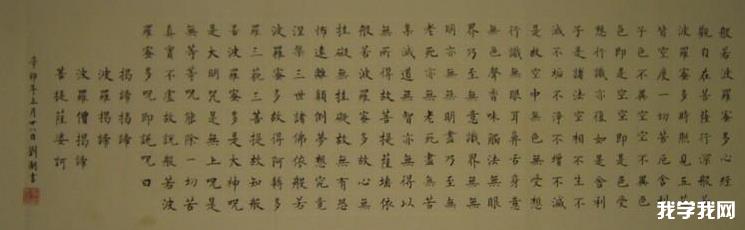 般若波羅蜜多心經
觀自在菩薩行深般若
波羅蜜多時照見五蘊
皆空度一切苦厄舍利
子色不異空空不異色
色即是空空即是色受
想行識亦復如是舍利
子是諸法空相不生不
滅不垢不淨不增不減
是故空中無色無受想
行識無眼耳鼻舌身意
無色聲香味觸法無眼
界乃至無意識界無無
明亦無無明盡乃至無
老死亦無老死盡無苦
集滅道無智亦無得以
無所得故菩提薩埵依
般若波羅蜜多故心無
挂礙無挂礙故無有恐
怖遠離顛倒夢想究竟
涅槃三世諸佛依般若
波羅蜜多故得阿耨多
羅三藐三菩提故知般
若波羅蜜多是大神呪
是大明呪是無上呪是
無等等呪能除一切苦
真實不虛故說般若波
羅蜜多呪即說呪曰
揭諦揭諦
波羅揭諦
波羅僧揭諦
菩提薩婆訶
辛卯年月廿八日劉書
我学我网